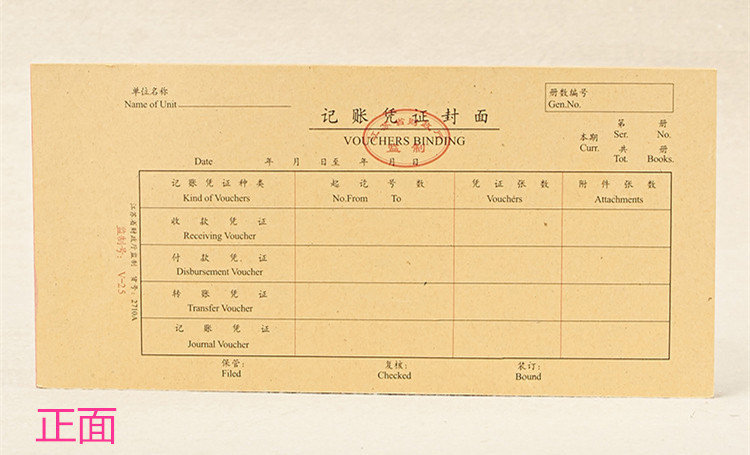 单位名称
Name of Unit
册数编号
Gen.No.
记账凭证封面
VOUCHERS BINDING
江苏省财政厅
监制
本期 第 册
Curr. Ser. No.
共 册
Tot. Books.
Date 年 月 日至 年 月 日
记账凭证种类 起讫号数 凭证张数 附件张数
Kind of Vouchers No.From To Vouchers Attachments
收款凭证
Receiving Voucher
付款凭证
Disbursement Voucher
转账凭证
Transfer Voucher
记账凭证
Journal Voucher
保管: 复核: 装订:
Filed Checked Bound
江苏省财政厅监制 货号: 2710A
监制号: V-25
正面